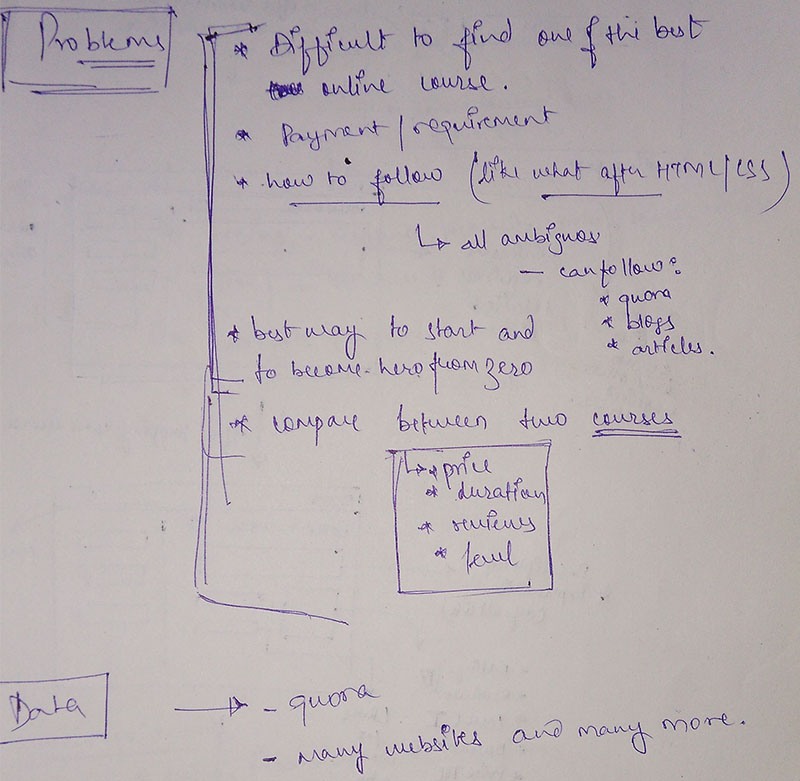 Problems
* Difficult to find one of the best
online course.
* Payment / requirement
* how to follow (like what after HTML/CSS)
↳ all ambignos
- can follow:
* quora
* blogs
* articles.
* best way to start and
to become hero from zero
* compare between two courses
↳ * price
* duration
* reviews
*
Data → - quora
- many websites and many more.